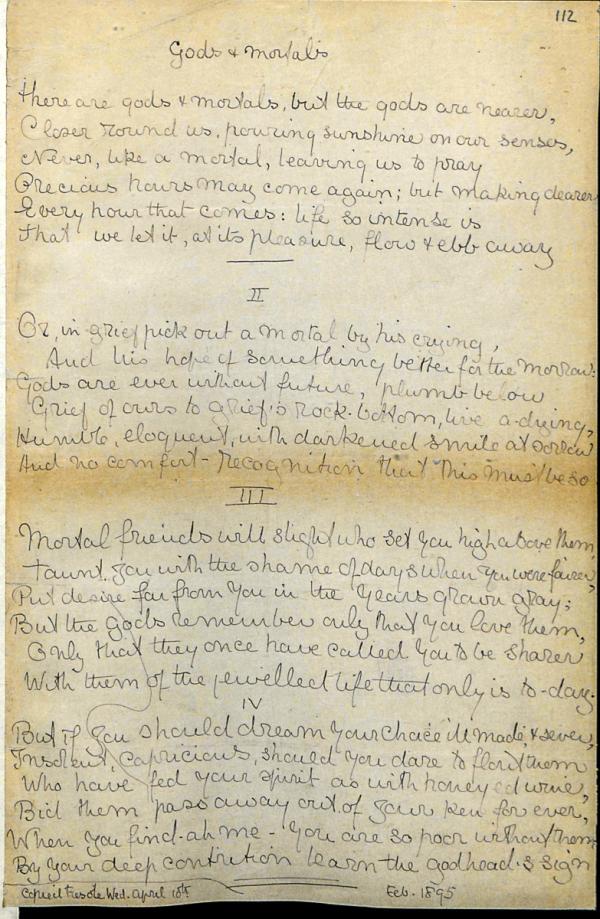 112
Gods & mortals
There are gods & mortals, but the gods are nearer,
Closer round us, pouring sunshine on our senses,
Never, like a mortal, leaving us to pray
Precious hours may come again; but making dearer
Every hour that comes: life so intense is
That we let it, at its pleasure, flow & ebb away
II
Or, in grief pick out a mortal by his crying,
And his hope of something better for the morrow:
Gods are ever without future, plumb below
Grief of ours to grief's rock-bottom, live a-dying,
Humble, eloquent, with darkened smile at sorrow
And no comfort - recognition that this must be so
III
Mortal friends will slight who set you high above them,
Taunt you with the shame of days when you were fairer,
Put desire far from you in the years grown gray;
But the gods remember only that you love them,
Only that they once have called you to be sharer
With them of the jewelled life that only is to-day.
IV
But if you should dream your choice ill made, & sever,
Insolent, capricious, should you dare to flout them
Who have fed your spirit as with honeyed wine,
Bid them pass away out of your ken for ever,
When you find - ah me - you are so poor without them
By your deep contrition learn the godhead's sign
Wed. April 10th
Feb. 1895